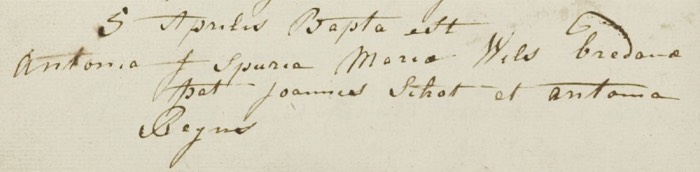 5 Aprilis Bapta est
Antonia f Spuria Maria Wils bredanæ
pat Joannes Schot et antonia
Beyns